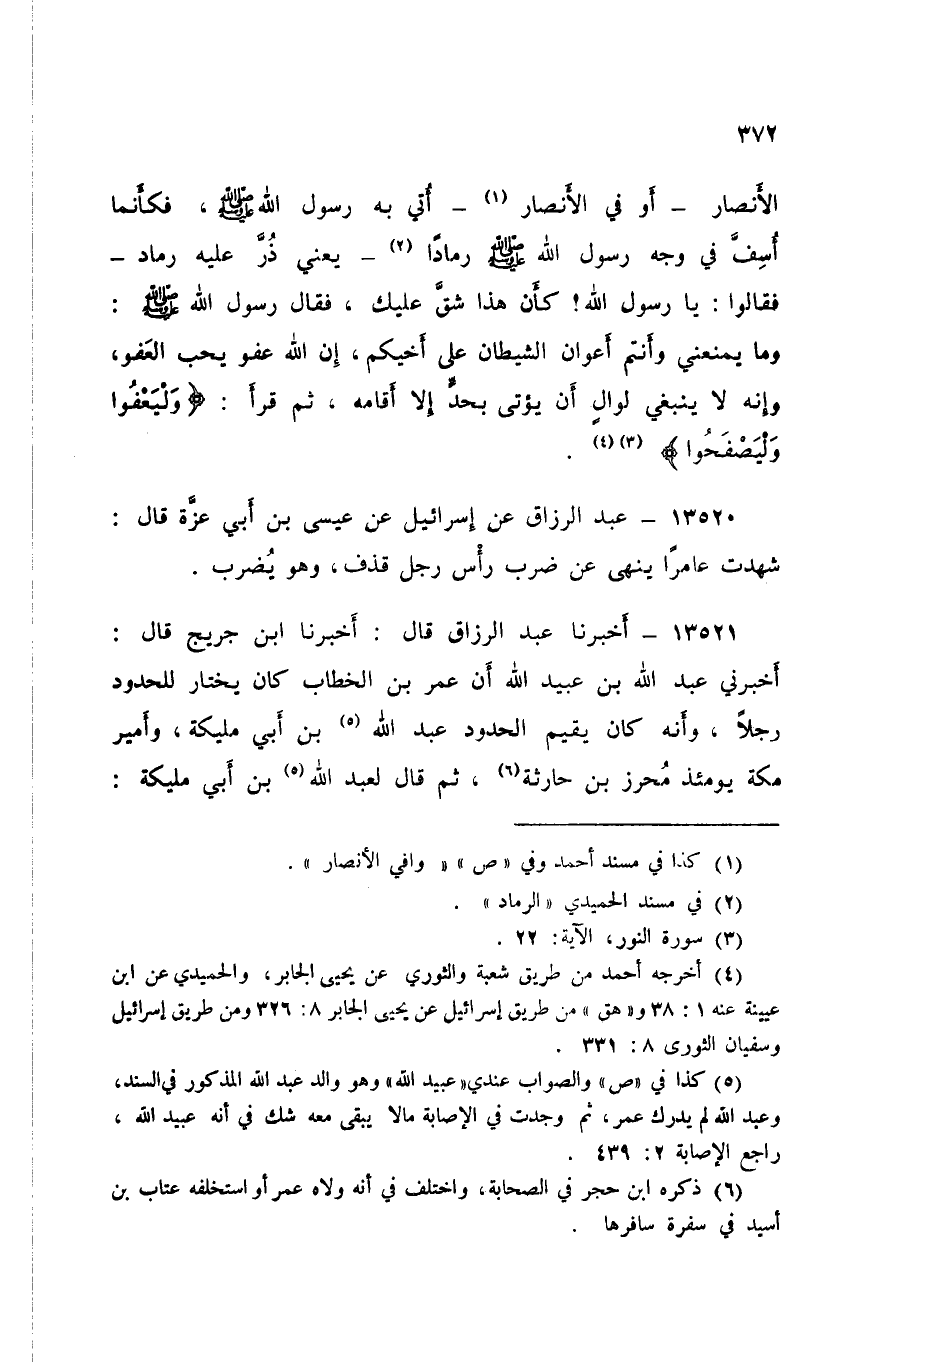 ٣٧٢
الأَنصار – أَو في الأَنصار (١) – أُتي به رسول الله ﷺ ، فكأَنما
أُسِفَّ في وجه رسول الله ﷺ رمادًا (٢) – يعني ذُرَّ عليه رماد –
فقالوا : يا رسول الله! كأَن هذا شقَّ عليك ، فقال رسول الله ﷺ :
وما يمنعني وأَنتم أَعوان الشيطان على أَخيكم، إِن الله عفو يحب العَفو،
وإنه لا ينبغي لوالٍ أَن يؤتى بحدٍّ إِلا أَقامه ، ثم قرأَ : ﴿ وَلْيَعْفُوا
وَلْيَصْفَحُوا ﴾ (٣)(٤) .
١٣٥٢٠ – عبد الرزاق عن إِسرائيل عن عيسى بن أَبي عزَّة قال :
شهدت عامرًا ينهى عن ضرب رأْس رجل قذف، وهو يُضرب .
١٣٥٢١ – أَخبرنا عبد الرزاق قال : أَخبرنا ابن جريج قال :
أَخبرني عبد الله بن عبيد الله أَن عمر بن الخطاب كان يختار للحدود
رجلاً ، وأَنه كان يقيم الحدود عبد الله (٥) بن أَبي مليكة ، وأَمير
مكة يومئذ مُحرز بن حارثة(٦) ، ثم قال لعبد الله (٥) بن أَبي مليكة :
(١) كذا في مسند أحمد وفي « ص » « وافي الأنصار » .
(٢) في مسند الحميدي « الرماد » .
(٣) سورة النور، الآية: ٢٢ .
(٤) أخرجه أحمد من طريق شعبة والثوري عن يحيى الجابر، والحميدي عن ابن
عيينة عنه ١ : ٣٨ و« هق » من طريق إسرائيل عن يحيى الجابر ٨: ٣٢٦ ومن طريق إسرائيل
وسفيان الثورى ٨: ٣٣١ .
(٥) كذا في «ص» والصواب عندي«عبيد الله» وهو والد عبد الله المذكور في السند،
وعبد الله لم يدرك عمر، ثم وجدت في الإصابة مالا يبقى معه شك في أنه عبيد الله ،
راجع الإصابة ٢: ٤٣٩ .
(٦) ذكره ابن حجر في الصحابة، واختلف في أنه ولاه عمر أو استخلفه عتاب بن
أسيد في سفرة سافرها .